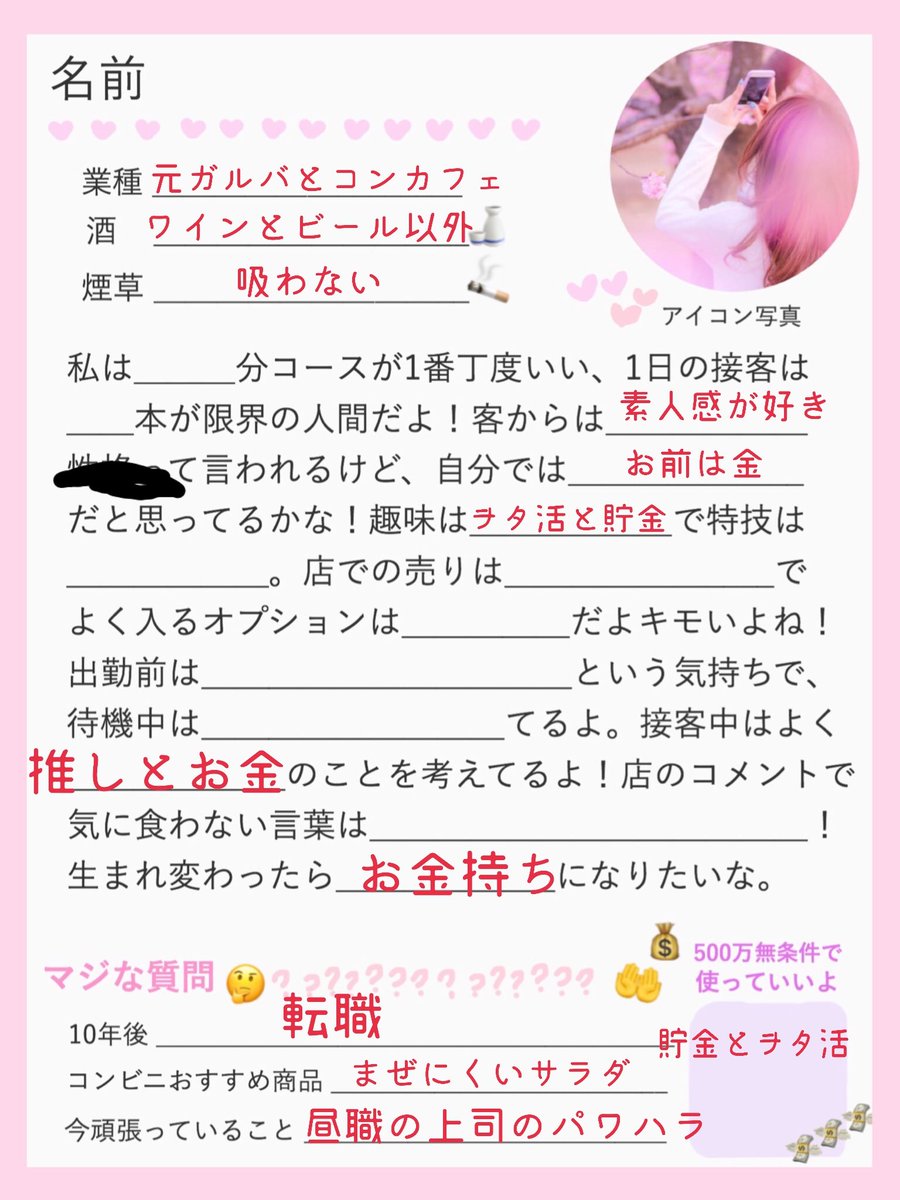 名前
業種 元ガルバとコンカフェ
酒 ワインとビール以外
煙草 吸わない
アイコン写真
私は______分コースが1番丁度いい、1日の接客は
____本が限界の人間だよ!客からは素人感が好き
って言われるけど、自分ではお前は金
だと思ってるかな!趣味はヲタ活と貯金で特技は
____________。店での売りは________________で
よく入るオプションは__________だよキモいよね!
出勤前は______________________という気持ちで、
待機中は__________________てるよ。接客中はよく
推しとお金のことを考えてるよ!店のコメントで
気に食わない言葉は__________________________!
生まれ変わったらお金持ちになりたいな。
マジな質問 ????????????????
500万無条件で
使っていいよ
10年後 転職
貯金とヲタ活
コンビニおすすめ商品 まぜにくいサラダ
今頑張っていること 昼職の上司のパワハラ